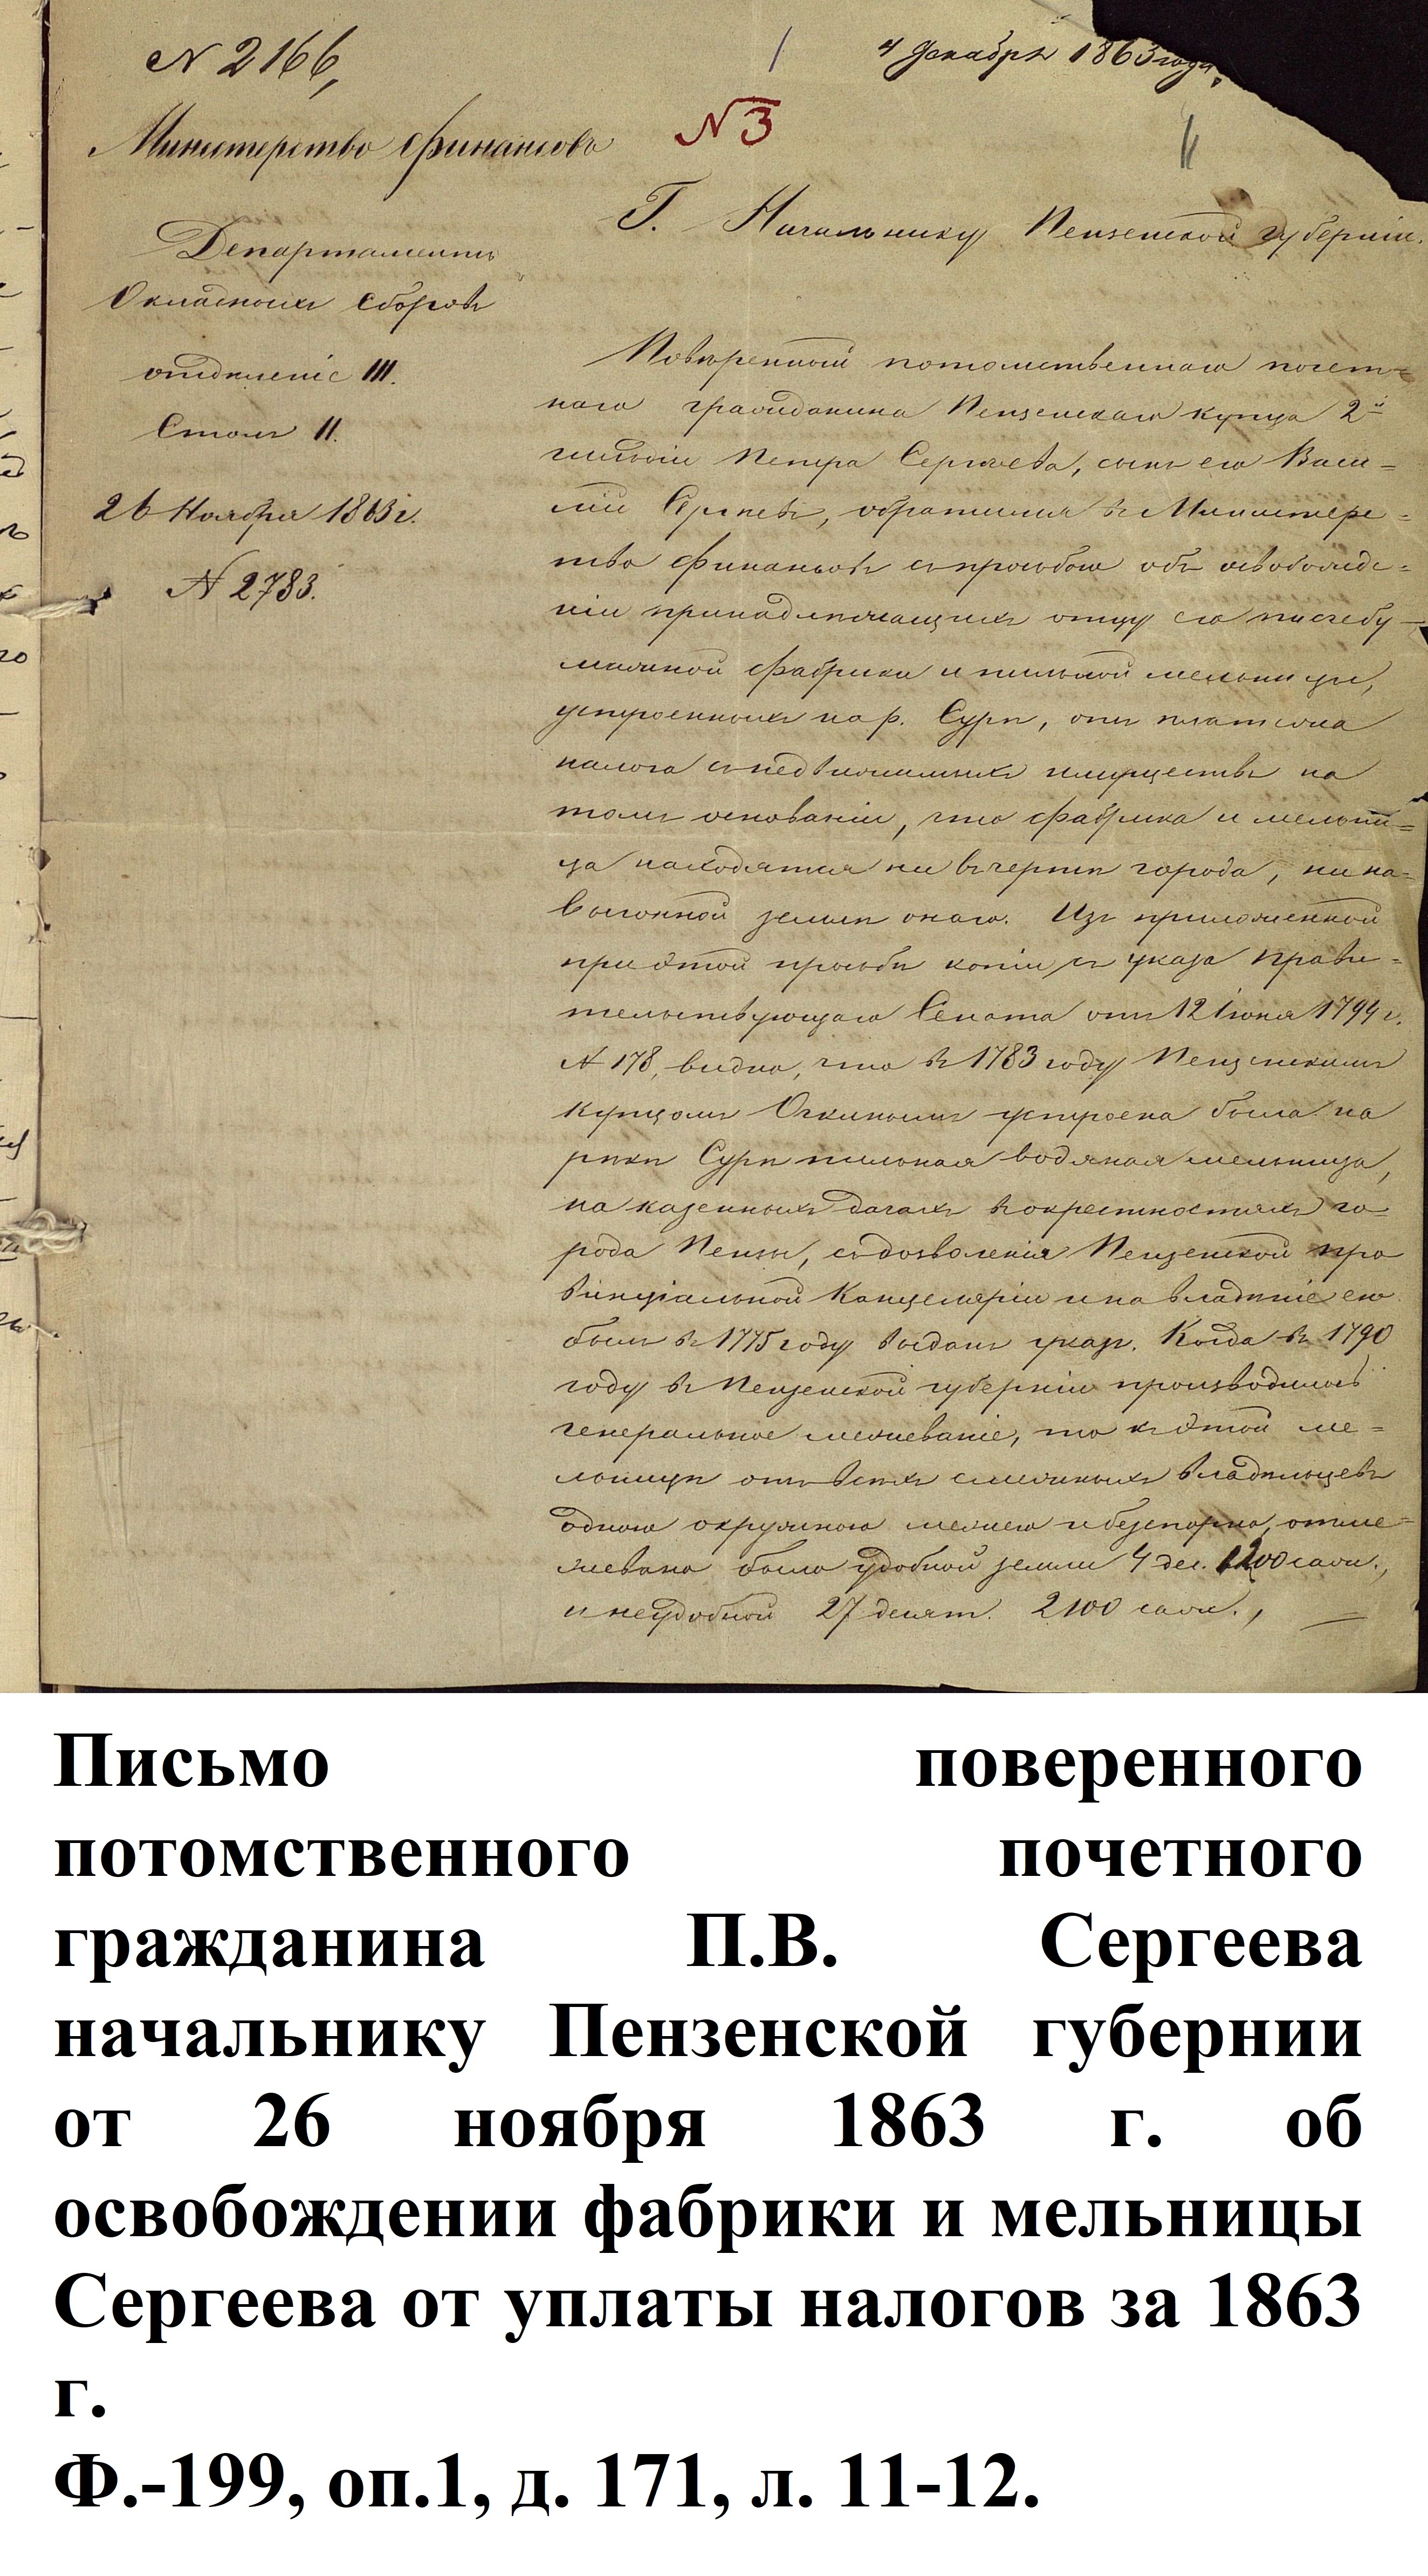 N 2166,
4 Декабря 1863 года.
N 3
11
Министерство Финансовъ
Департаментъ
Окладныхъ Сборовъ
отдѣленіе III.
Столъ II.
26 Ноября 1863 г.
N 2783.
Г. Начальнику Пензенской губерніи.
Повѣренный потомственнаго почет=
наго гражданина Пензенскаго купца 2й
гильдіи Петра Сергѣева, сынъ его Васи=
лій Сергѣевъ, обратился въ Министер=
тво Финансовъ съ просьбою объ освобожде=
ніи принадлежащихъ отцу его писчебу-
мажной фабрики и пильной мельницы,
устроенныхъ на р. Сурѣ, отъ платежа
налога съ недвижимыхъ имуществъ на
томъ основаніи, что фабрика и мельни=
ца находятся ни въ чертѣ города, ни на=
выгонной землѣ онаго. Изъ приложенной
при этой просьбѣ копіи съ указа Прави=
тельствующаго Сената отъ 12 Іюня 1794 г.
N 178, видно, что въ 1783 году Пензенскимъ
купцомъ Очкинымъ устроена была на
рѣкѣ Сурѣ пильная водяная мельница,
на казенныхъ дачахъ въ окрестностяхъ го=
рода Пензы, съ дозволенія Пензенской про
винціальной Канцеляріи и на владѣніе ею
былъ въ 1775 году выданъ указъ. Когда въ 1790
году въ Пензенской губерніи производилось
генеральное межеваніе, то къ этой ме=
льницѣ отъ всѣхъ смежныхъ владѣльцевъ
одною окружною межею и безспорно, отме=
жевано было удобной земли 4 дес. 1200 саж.,
и неудобной 27 десят. 2100 саж.,
Письмо поверенного
потомственного почетного
гражданина П.В. Сергеева
начальнику Пензенской губернии
от 26 ноября 1863 г. об
освобождении фабрики и мельницы
Сергеева от уплаты налогов за 1863
г.
Ф.-199, оп.1, д. 171, л. 11-12.